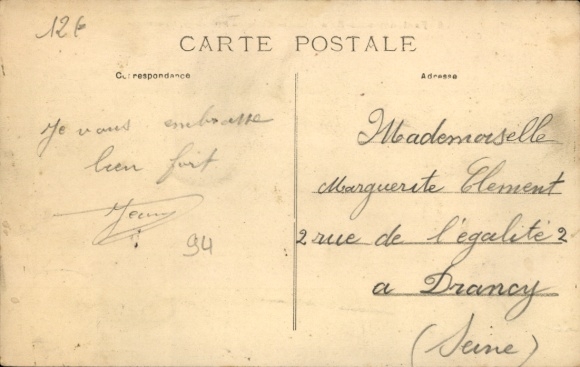 12€
CARTE POSTALE
Correspondance
Adresse
Je vous embrasse
bien fort
Jean
94
Mademoiselle
Marguerite Clement
2 rue de l'égalité 2
a Drancy
(Seine)